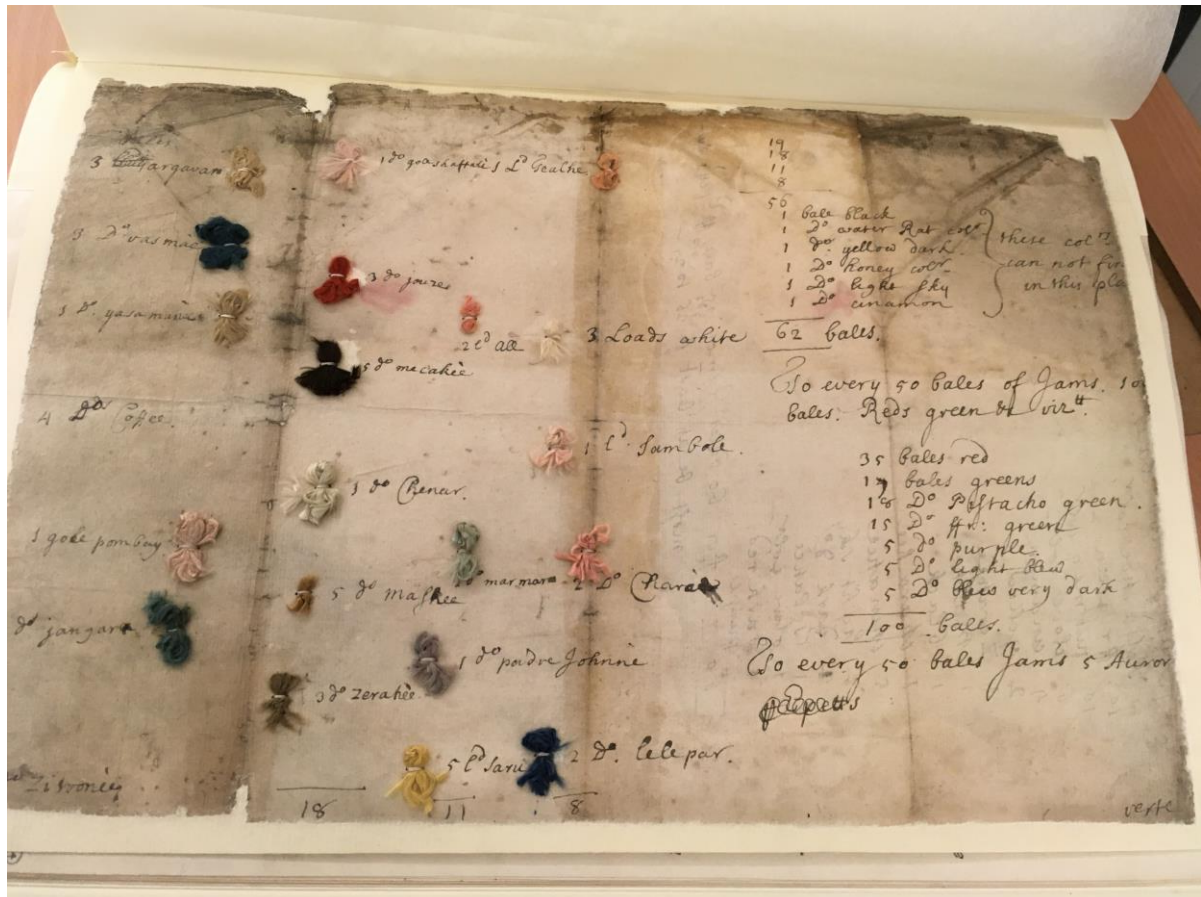 3 argavan
3 Do vasmae
1 Do. yasamani
4 Dos Coffee.
1 gole pombay
do jangare
Zitronie
1 do goashaffali
3 do joures
5 do mecahée
1 do Chenar.
5 do mashee
3 do Zerahée
18
2 ld all
marmara
1 do padre Johnnie
5 ld Sarii
11
1 Ld Gealhe
3 Loads white
1 ld. Sambole.
2 Do Charai
2 Do. lelepar.
8
19
18
11
8
56
1 bale black
1 Do water Rat colr
1 do. yellow dark
1 Do honey colr
1 Do light sky
1 Do cinamon
these colrs
can not fin
in this pla
62 bales.
To every 50 bales of Jams. 10
bales. Reds green &c vizt
35 bales red
17 bales greens
18 Do Pistacho green.
15 Do ffr: green
5 do purple.
5 Do light blew
5 Do blew very dark
100 bales.
To every 50 bales Jams 5 Auror
verte